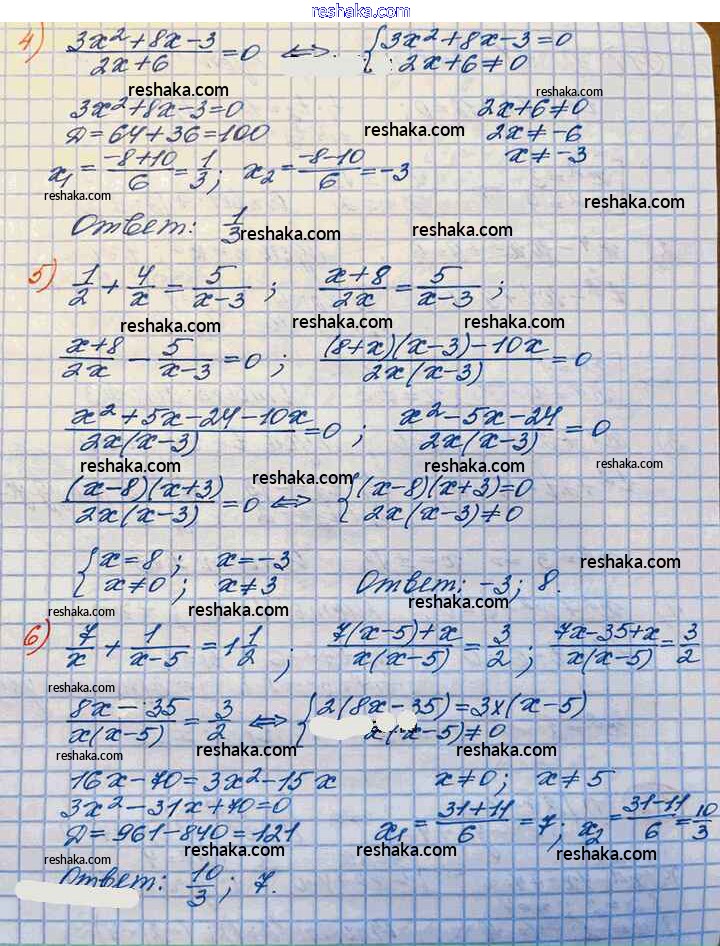 reshaka.com
4) (3x²+8x-3)/(2x+6) = 0 ⇔ { 3x²+8x-3=0
2x+6≠0
reshaka.com reshaka.com
3x²+8x-3=0 2x+6≠0
Д=64+36=100 reshaka.com 2x≠-6
x₁=(-8+10)/6=1/3; x₂=(-8-10)/6=-3 x≠-3
reshaka.com reshaka.com
Ответ: 1/3 reshaka.com reshaka.com
5) 1/2 + 4/x = 5/(x-3); (x+8)/2x = 5/(x-3);
reshaka.com reshaka.com reshaka.com
(x+8)/2x - 5/(x-3) = 0; ((8+x)(x-3)-10x)/(2x(x-3)) = 0
(x²+5x-24-10x)/(2x(x-3)) = 0; (x²-5x-24)/(2x(x-3)) = 0
reshaka.com reshaka.com reshaka.com reshaka.com
((x-8)(x+3))/(2x(x-3)) = 0 ⇔ { (x-8)(x+3)=0
2x(x-3)≠0
reshaka.com reshaka.com
{ x=8; x=-3
x≠0; x≠3 Ответ: -3; 8.
reshaka.com reshaka.com reshaka.com
6) 7/x + 1/(x-5) = 1 1/2; (7(x-5)+x)/(x(x-5)) = 3/2; (7x-35+x)/(x(x-5)) = 3/2
reshaka.com reshaka.com
(8x-35)/(x(x-5)) = 3/2 ⇔ { 2(8x-35)=3x(x-5)
x(x-5)≠0
reshaka.com reshaka.com reshaka.com
16x-70=3x²-15x x≠0; x≠5
3x²-31x+70=0 reshaka.com
Д=961-840=121 x₁=(31+11)/6=7; x₂=(31-11)/6=10/3
reshaka.com reshaka.com reshaka.com reshaka.com
Ответ: 10/3; 7.